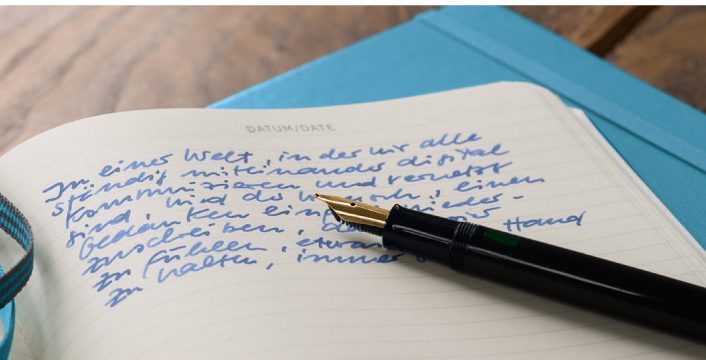 DATUM/DATE
In einer Welt, in der wir alle
ständig miteinander digital
kommunizieren und vernetzt
sind, wird der Wunsch, einen
Gedanken einf
zuschreiben, d
zu fühlen, etwas Hand
zu halten, immer